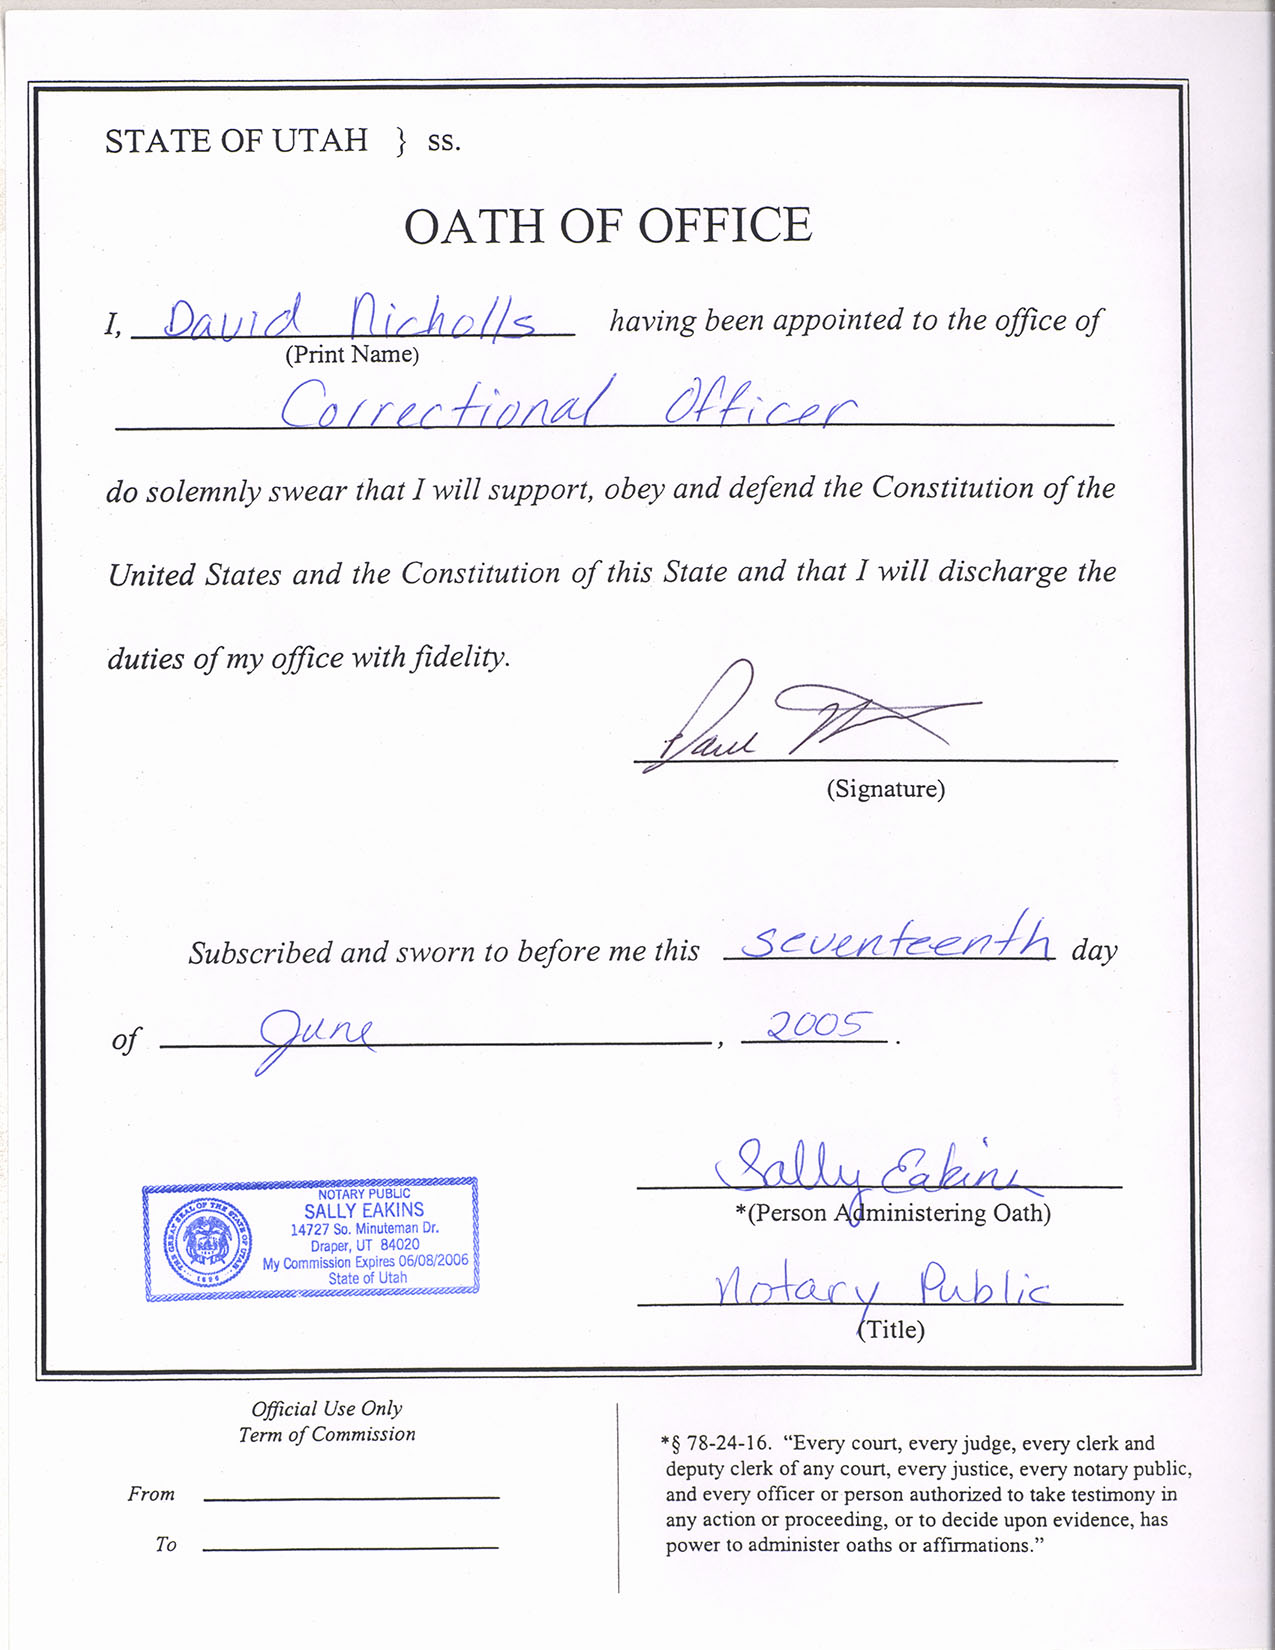 STATE OF UTAH } ss.
OATH OF OFFICE
I, David Nicholls having been appointed to the office of
(Print Name)
Correctional Officer
do solemnly swear that I will support, obey and defend the Constitution of the
United States and the Constitution of this State and that I will discharge the
duties of my office with fidelity.
(Signature)
Subscribed and sworn to before me this seventeenth day
of June, 2005.
Sally Eakins
*(Person Administering Oath)
Notary Public
(Title)
THE GREAT SEAL OF THE STATE OF UTAH
1896
NOTARY PUBLIC
SALLY EAKINS
14727 So. Minuteman Dr.
Draper, UT 84020
My Commission Expires 06/08/2006
State of Utah
Official Use Only
Term of Commission
From
To
*§ 78-24-16. “Every court, every judge, every clerk and
deputy clerk of any court, every justice, every notary public,
and every officer or person authorized to take testimony in
any action or proceeding, or to decide upon evidence, has
power to administer oaths or affirmations.”